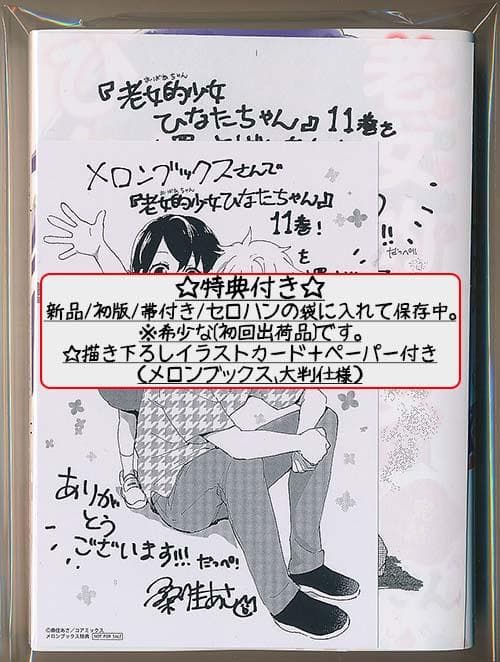 『老女的少女
おばあちゃん
ひなたちゃん』11巻を
メロンブックスさんで
『老女的少女ひなたちゃん』
おばあちゃん
11巻!
を
☆特典付き☆
新品/初版/帯付き/セロハンの袋に入れて保存中。
※希少な(初回出荷品)です。
☆描き下ろしイラストカード+ペーパー付き
(メロンブックス,大判仕様)
ありが
とう
ございます!!!
だっぺ!
桑佳あさ
©桑佳あさ/コアミックス
メロンブックス特典 NOT FOR SALE
だっぺ!!